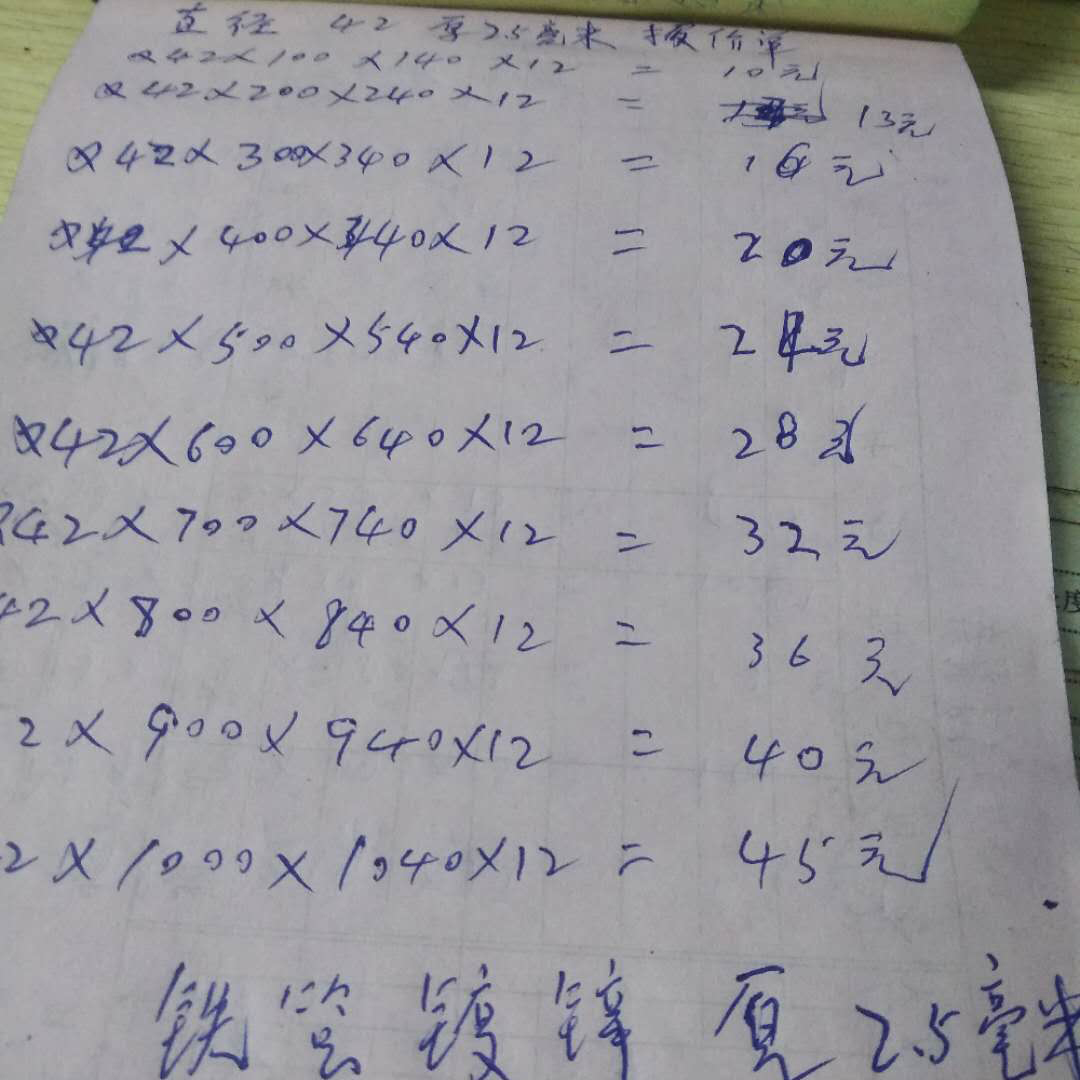 直径 42 厚2.5毫米 报价单
⌀42×100×140×12 = 10元
⌀42×200×240×12 = 13元
⌀42×300×340×12 = 16元
⌀42×400×440×12 = 20元
⌀42×500×540×12 = 24元
⌀42×600×640×12 = 28元
⌀42×700×740×12 = 32元
42×800×840×12 = 36元
2×900×940×12 = 40元
2×1000×1040×12 = 45元
铁管镀锌 厚2.5毫米
度